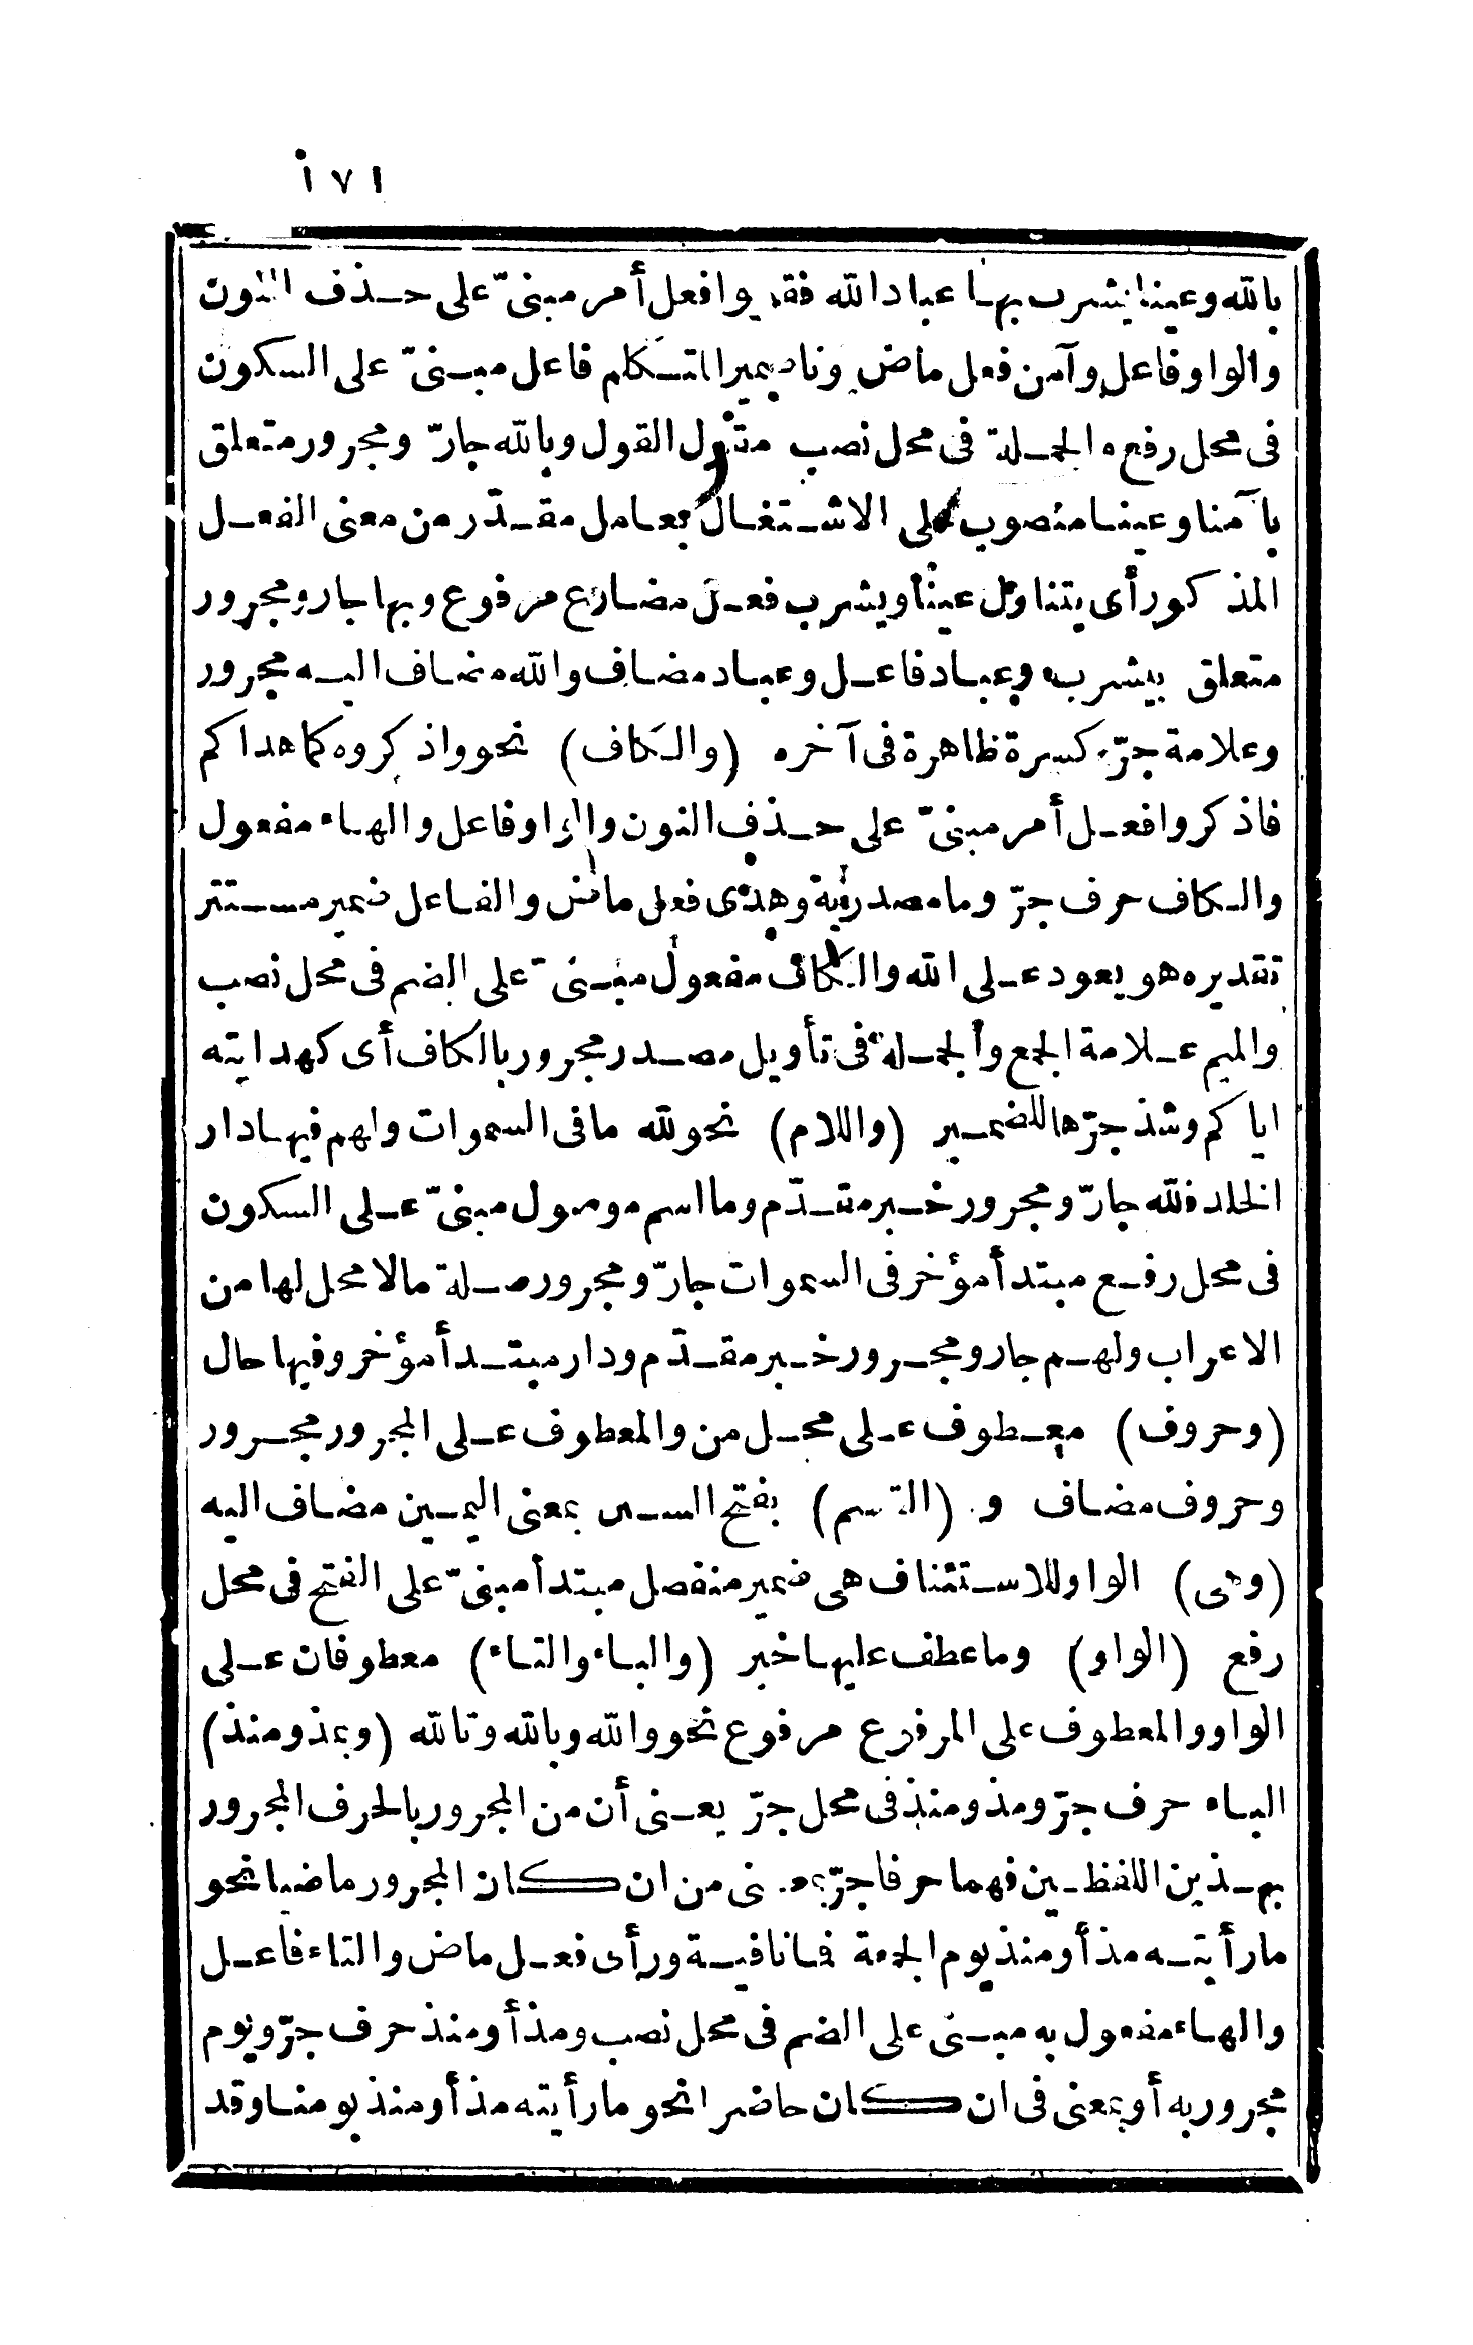 ١٧١
بالله وعينا يشرب بها عباد الله فقولوا فعل أمر مبنىّ على حذف النون
والواو فاعل وآمن فعل ماض ونا ضمير المتكلم فاعل مبنىّ على السكون
فى محل رفع والجملة فى محل نصب مقول القول وبالله جارّ ومجرور متعلق
بآمنا وعينا منصوب على الاشتغال بعامل مقدّر من معنى الفعل
المذكور أى يتناول عينا ويشرب فعل مضارع مرفوع وبها جار ومجرور
متعلق بيشرب وعباد فاعل وعباد مضاف والله مضاف اليه مجرور
وعلامة جرّه كسرة ظاهرة فى آخره (والكاف) نحو واذكروه كما هداكم
فاذكروا فعل أمر مبنىّ على حذف النون والواو فاعل والهاء مفعول
والكاف حرف جرّ وما مصدرية وهدى فعل ماض والفاعل ضمير مستتر
تقديره هو يعود على الله والكاف مفعول مبنىّ على الضم فى محل نصب
والميم علامة الجمع والجملة فى تأويل مصدر مجرور بالكاف أى كهدايته
اياكم وشذ جرّها للضمير (واللام) نحو لله ما فى السموات ولهم فيها دار
الخلد فلله جارّ ومجرور خبر مقدّم وما اسم موصول مبنىّ على السكون
فى محل رفع مبتدأ مؤخر فى السموات جارّ ومجرور صلة ما لا محل لها من
الاعراب ولهم جار ومجرور خبر مقدّم ودار مبتدأ مؤخر وفيها حال
(وحروف) معطوف على محل من والمعطوف على المجرور مجرور
وحروف مضاف و (القسم) بفتح السين بمعنى اليمين مضاف اليه
(وهى) الواو للاستئناف هى ضمير منفصل مبتدأ مبنىّ على الفتح فى محل
رفع (الواو) وما عطف عليها خبر (والباء والتاء) معطوفان على
الواو والمعطوف على المرفوع مرفوع نحو والله وبالله وتالله (وبمذ ومنذ)
الباء حرف جرّ ومذ ومنذ فى محل جرّ يعنى أن من المجرور بالحرف المجرور
بهذين اللفظين فهما حرفا جرّ بمعنى من ان كان المجرور ماضيا نحو
ما رأيته مذ أو منذ يوم الجمعة فما نافية ورأى فعل ماض والتاء فاعل
والهاء مفعول به مبنى على الضم فى محل نصب ومذ أو منذ حرف جرّ ويوم
مجرور به أو بمعنى فى ان كان حاضرا نحو ما رأيته مذ أو منذ يومنا وقد